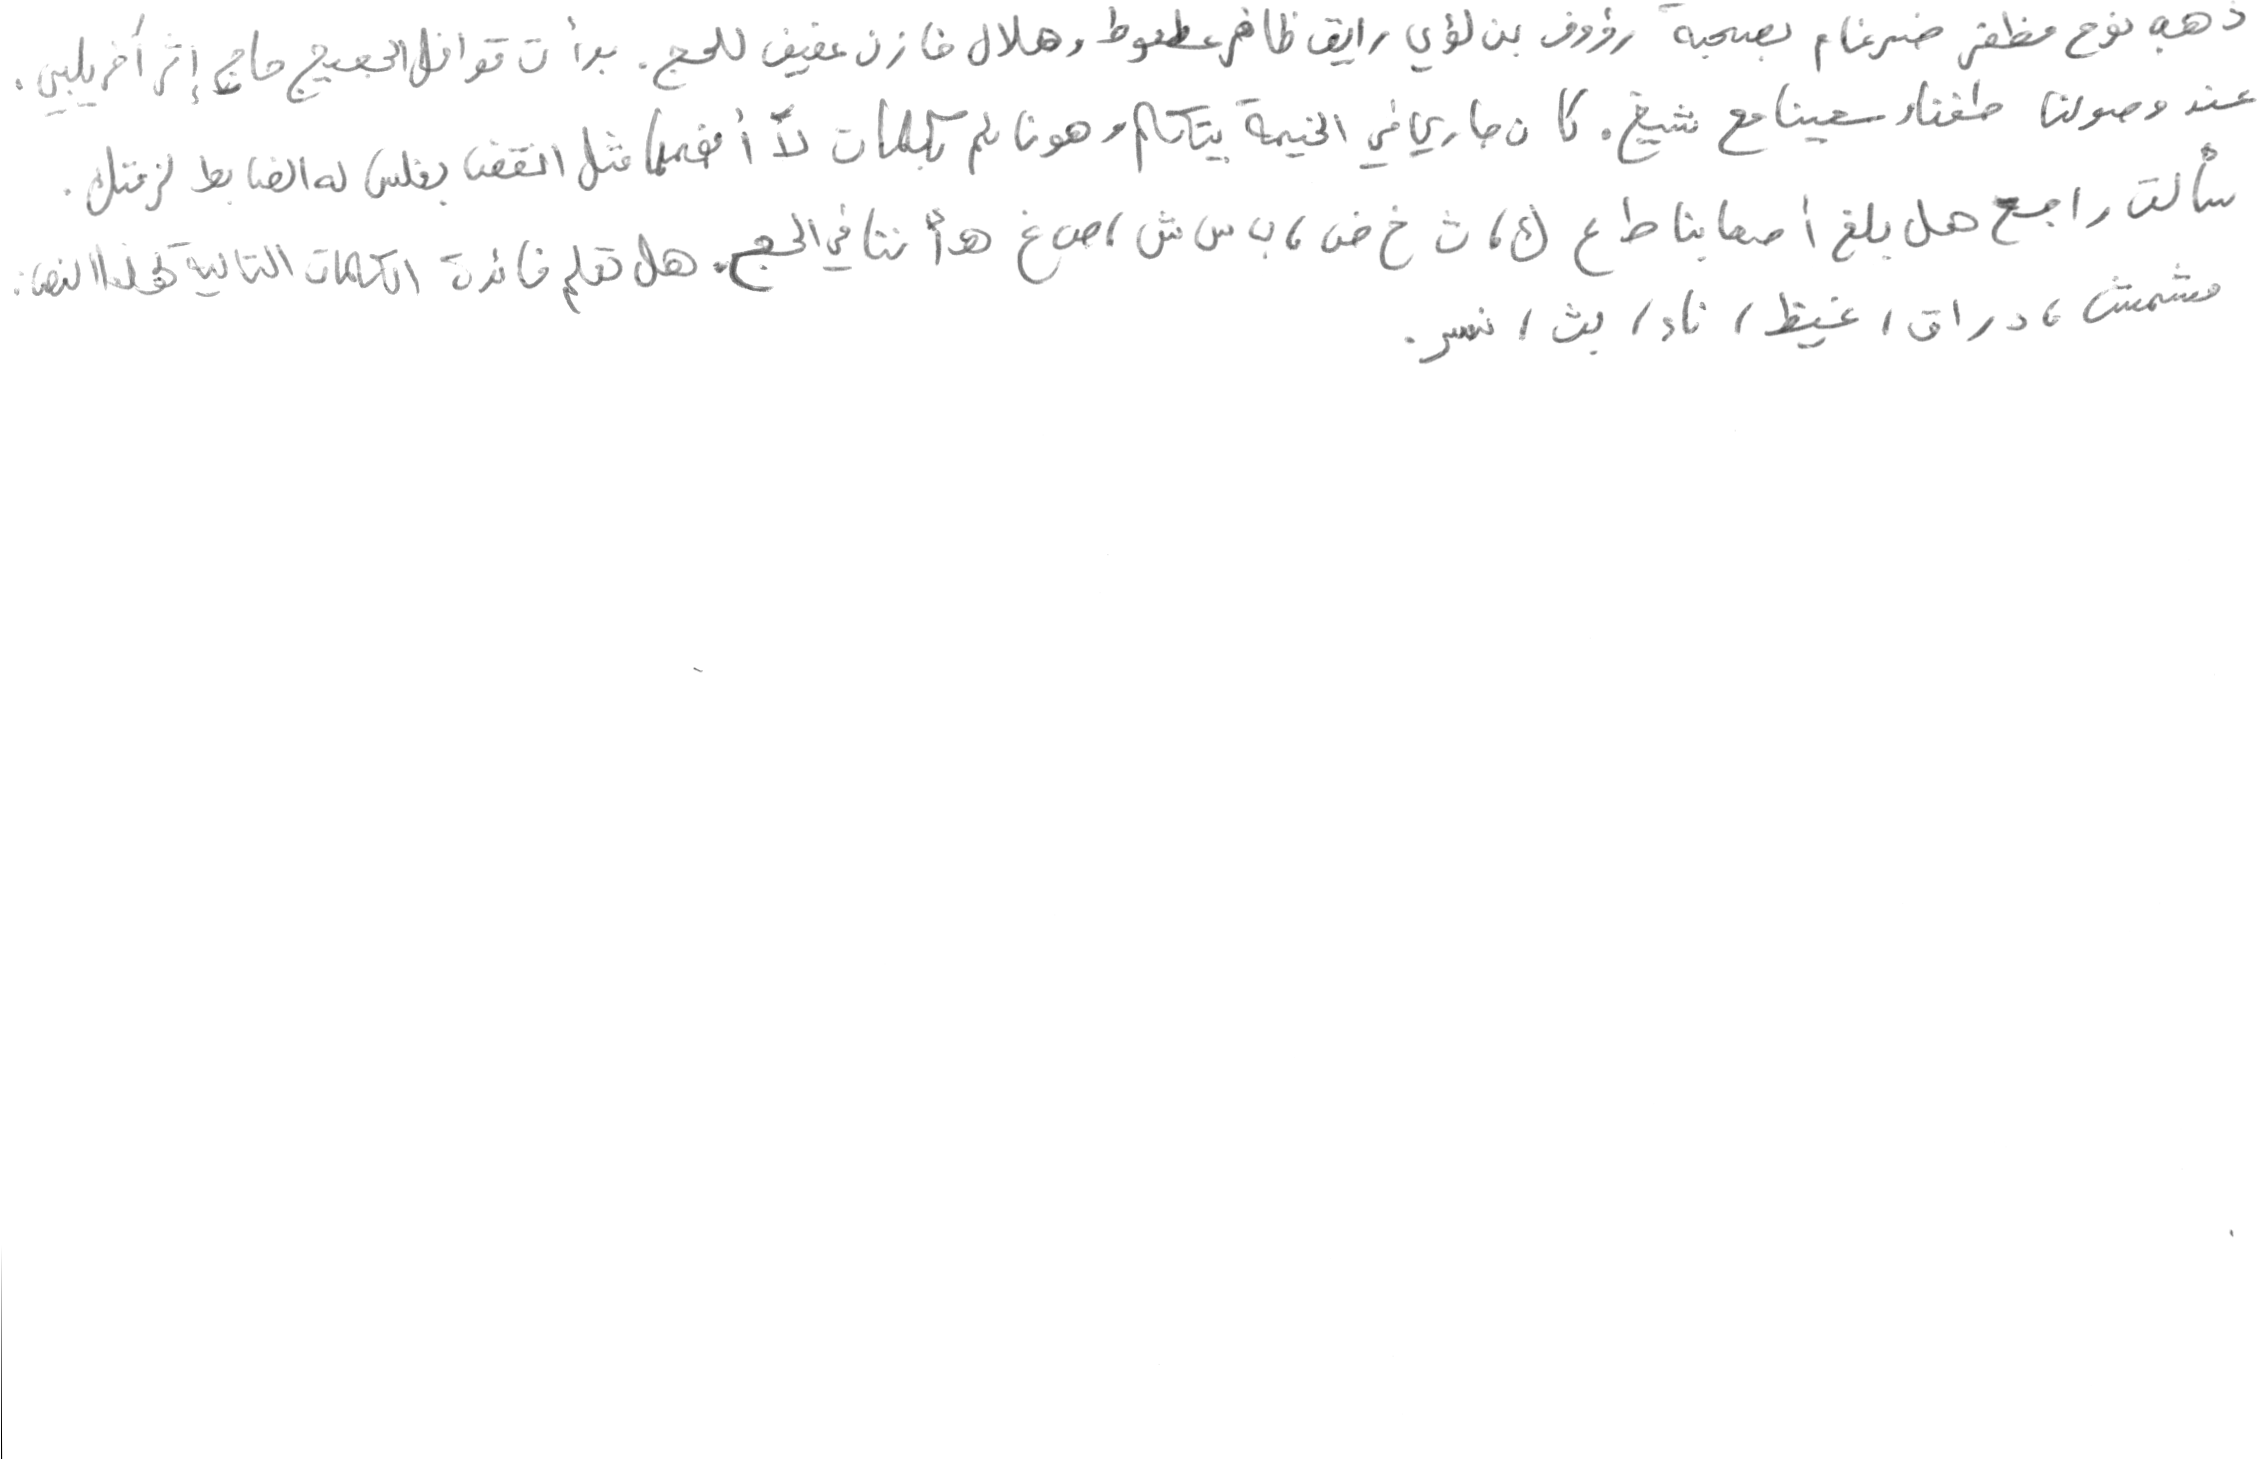 ذهب نوح مظفر ضرغام بصحبة رؤوف بن لؤي رايق ظافر عطعوط وهلال خازن عفيف للحج. بدأت قوافل الحجيج حاج إثر أخر يلبي.
عند وصولنا طفنا وسعينا مع شيخ. كان جاري في الخيمة يتكلم وهو نائم بكلمات لا أفهمها مثل انقضنا بغلس له الضابط لزقتك.
سألت راجح هل بلغ أصحابنا ط ع ك، ث خ ض، ب س ش، ص غ هدأتنا في الحج. هل تعلم فائدة الكلمات التالية لهذا النص:
مشمش، دراق، غيظ، ناد، بث، نسر.